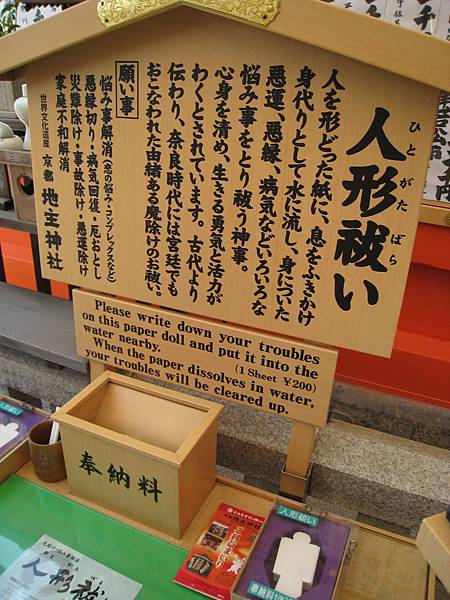 人形祓い
ひとがたばらい
人を形どった紙に、息をふきかけ
身代りとして水に流し、身についた
悪運、悪縁、病気などいろいろな
悩み事をとり祓う神事。
心身を清め、生きる勇気と活力が
わくとされています。古代より
伝わり、奈良時代には宮廷でも
おこなわれた由緒ある魔除けのお祓い。
願い事
悩み事解消(恋の悩み・コンプレックスなど)
悪縁切り・病気回復・厄おとし
災難除け・事故除け・悪運除け
家庭不和解消
世界文化遺産 京都 地主神社
Please write down your troubles
on this paper doll and put it into the
water nearby. (1 Sheet ¥200)
When the paper dissolves in water,
your troubles will be cleared up.
奉納料
人形祓い
人形祓